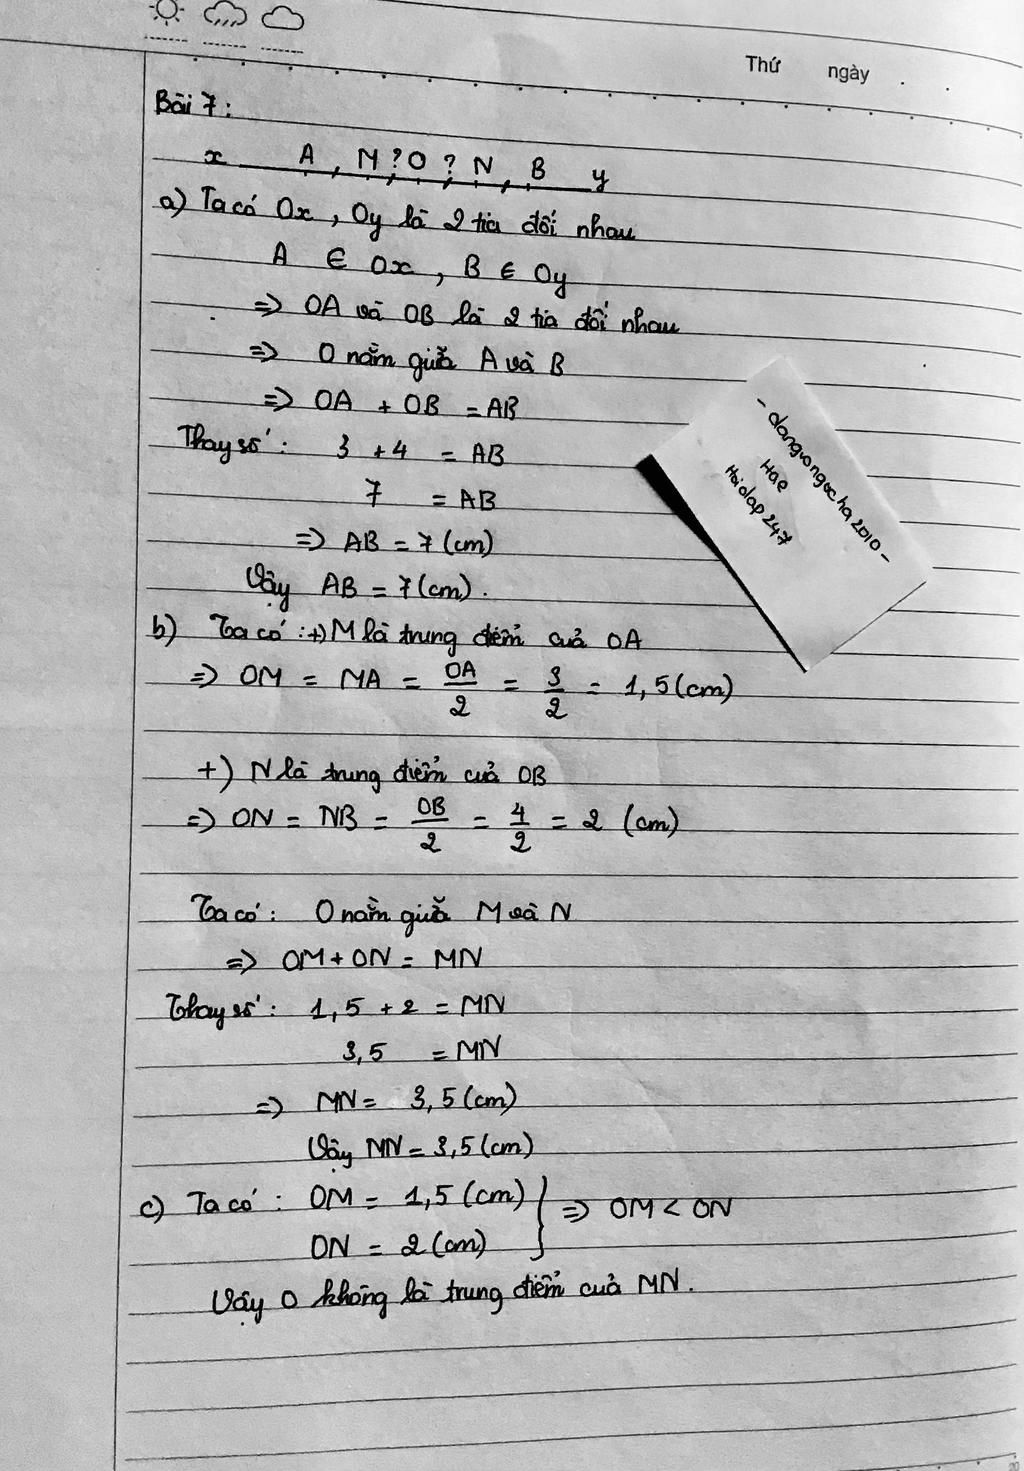 Thứ ngày
Bài 7:
x A M ? O ? N B y
a) Ta có Ox, Oy là 2 tia đối nhau
A ∈ Ox, B ∈ Oy
=> OA và OB là 2 tia đối nhau
=> O nằm giữa A và B
=> OA + OB = AB
Thay số: 3 + 4 = AB
7 = AB
=> AB = 7 (cm)
Vậy AB = 7 (cm).
b) Ta có: +) M là trung điểm của OA
=> OM = MA = OA/2 = 3/2 = 1,5 (cm)
+) N là trung điểm của OB
=> ON = NB = OB/2 = 4/2 = 2 (cm)
Ta có: O nằm giữa M và N
=> OM + ON = MN
Thay số: 1,5 + 2 = MN
3,5 = MN
=> MN = 3,5 (cm)
Vậy MN = 3,5 (cm)
c) Ta có: OM = 1,5 (cm) } => OM < ON
ON = 2 (cm)
Vậy O không là trung điểm của MN.
- dangvongocha2010 -
Hae
Hoidap247